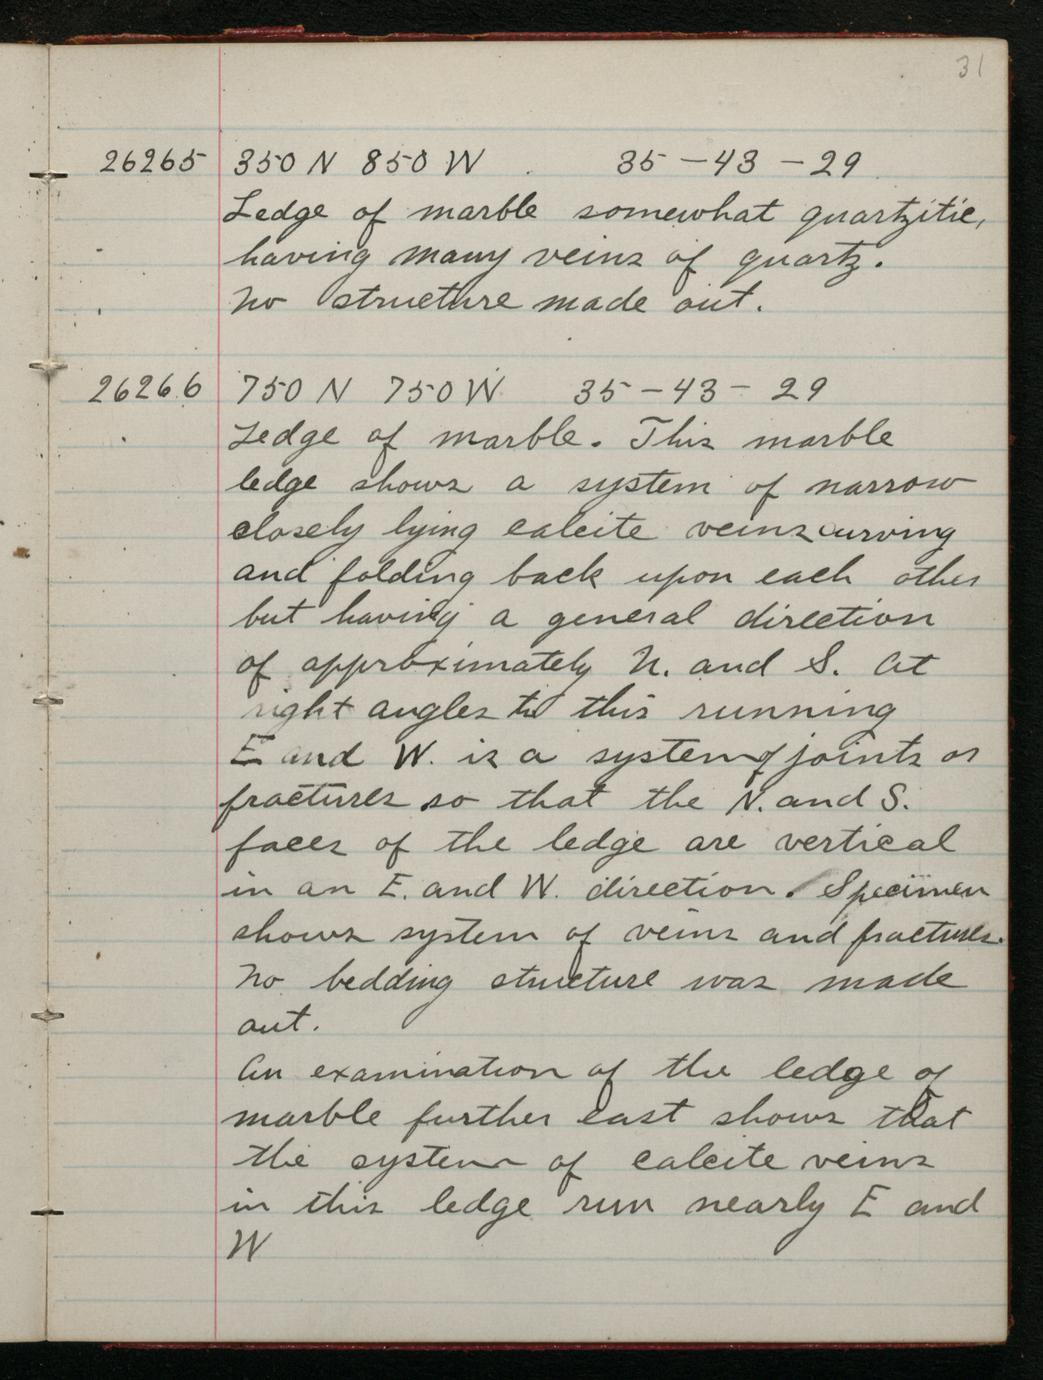 31
26265 350 N 850 W 35-43-29
Ledge of marble somewhat quartzitic,
having many veins of quartz.
No structure made out.
26266 750 N 750 W 35-43-29
Ledge of marble. This marble
ledge shows a system of narrow
closely lying calcite veins curving
and folding back upon each other
but having a general direction
of approximately N. and S. At
right angles to this running
E and W. is a system of joints or
fractures so that the N. and S.
faces of the ledge are vertical
in an E. and W. direction. Specimen
shows system of veins and fractures.
No bedding structure was made
out.
An examination of the ledge of
marble further east shows that
the system of calcite veins
in this ledge run nearly E and
W